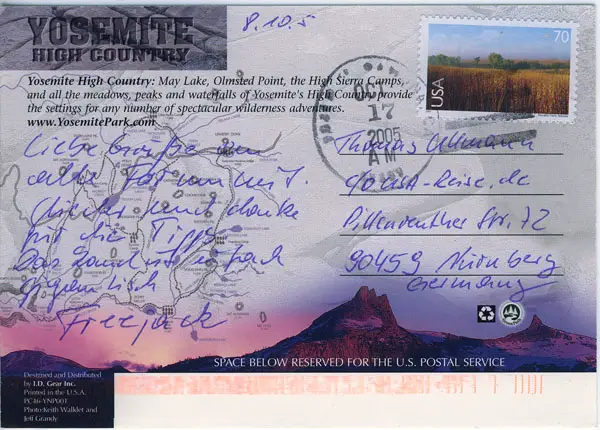 YOSEMITE
HIGH COUNTRY
8.10.5
70
USA
Yosemite High Country: May Lake, Olmsted Point, the High Sierra Camps,
and all the meadows, peaks and waterfalls of Yosemite's High Country provide
the settings for any number of spectacular wilderness adventures.
www.YosemitePark.com
17
2005
AM
Liebe Grüße an
alle
und danke
für die Tipps
Das Land ist einfach
gigantisch
Freejack
Thomas Ullmann
c/o USA-Reise.de
Str. 72
90459 Nürnberg
Germany
SPACE BELOW RESERVED FOR THE U.S. POSTAL SERVICE
Designed and Distributed
by I.D. Gear Inc.
Printed in the U.S.A.
PC46-YNP001
Photo:Keith Walklet and
Jeff Grandy